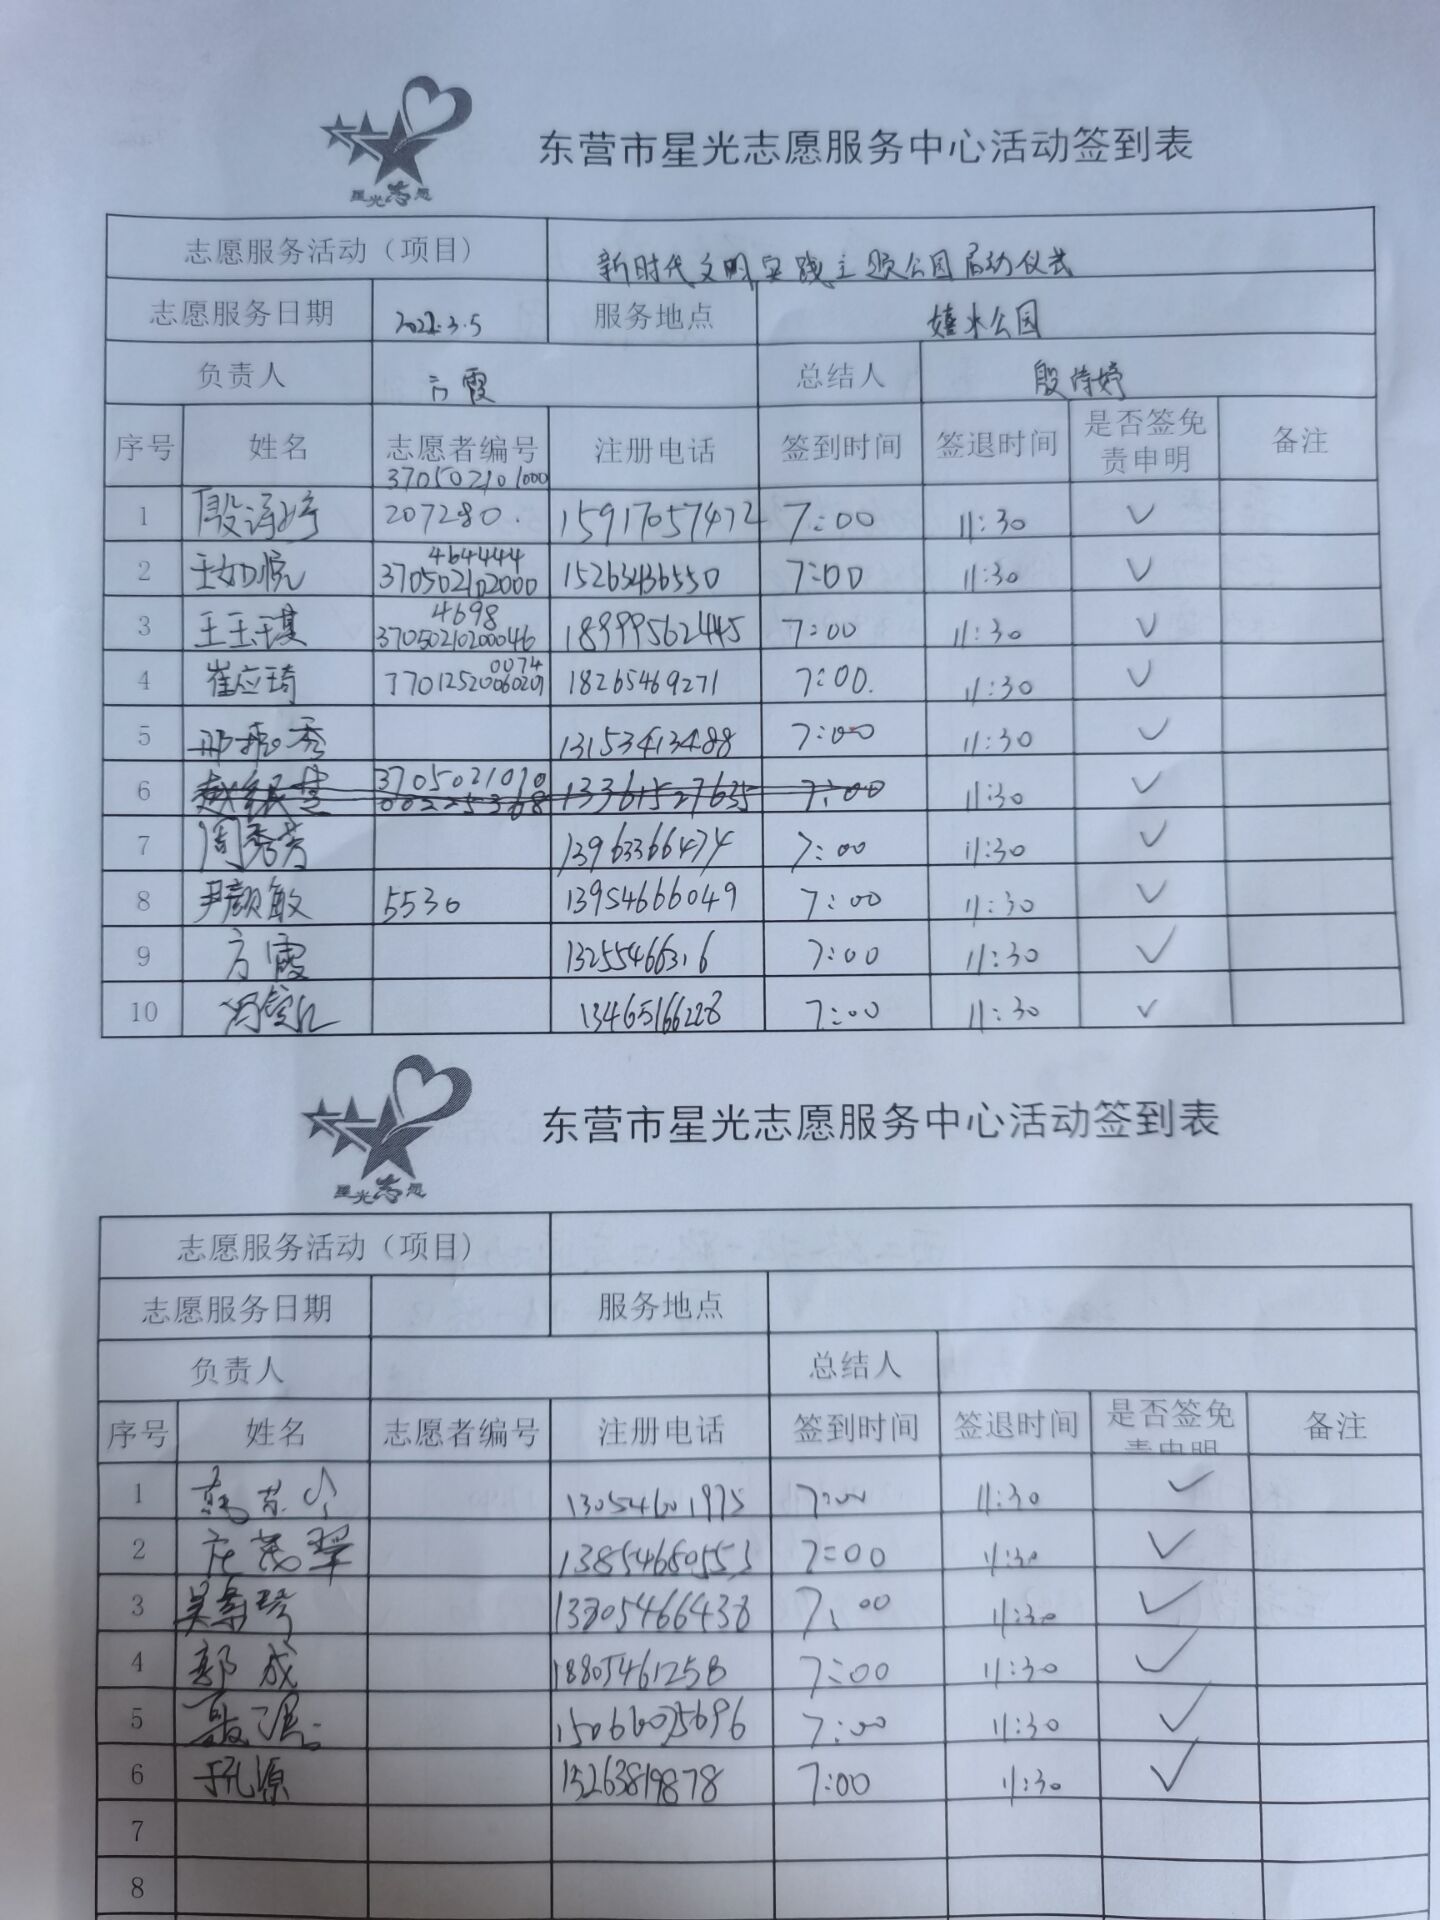 星光志愿
东营市星光志愿服务中心活动签到表
志愿服务活动（项目） 新时代文明实践主题公园启动仪式
志愿服务日期 2022.3.5 服务地点 嬉水公园
负责人 方霞 总结人 殷诗婷
序号 姓名 志愿者编号 注册电话 签到时间 签退时间 是否签免责申明 备注
370502101000
1 殷诗婷 207280. 15917057472 7:00 11:30 ✓
464444
2 王如悦 370502102000 15263436550 7:00 11:30 ✓
4698
3 王玉琪 3705021020046 18999562445 7:00 11:30 ✓
0074
4 崔应琦 18265469271 7:00. 11:30 ✓
5 秀 13153413488 7:00 11:30 ✓
3705021010
6 002251368 13361527635 7:00 11:30 ✓
7 周秀芳 13963366474 7:00 11:30 ✓
8 尹颜敏 5530 13954666049 7:00 11:30 ✓
9 方霞 13255466316 7:00 11:30 ✓
10 13465166228 7:00 11:30 ✓
星光志愿
东营市星光志愿服务中心活动签到表
志愿服务活动（项目）
志愿服务日期 服务地点
负责人 总结人
序号 姓名 志愿者编号 注册电话 签到时间 签退时间 是否签免责申明 备注
1 13054601975 7:00 11:30 ✓
2 13854680553 7:00 11:30 ✓
3 吴 13305466438 7:00 11:30 ✓
4 郭成 18805461258 7:00 11:30 ✓
5 15066025696 7:00 11:30 ✓
6 源 15263819878 7:00 11:30 ✓
7
8